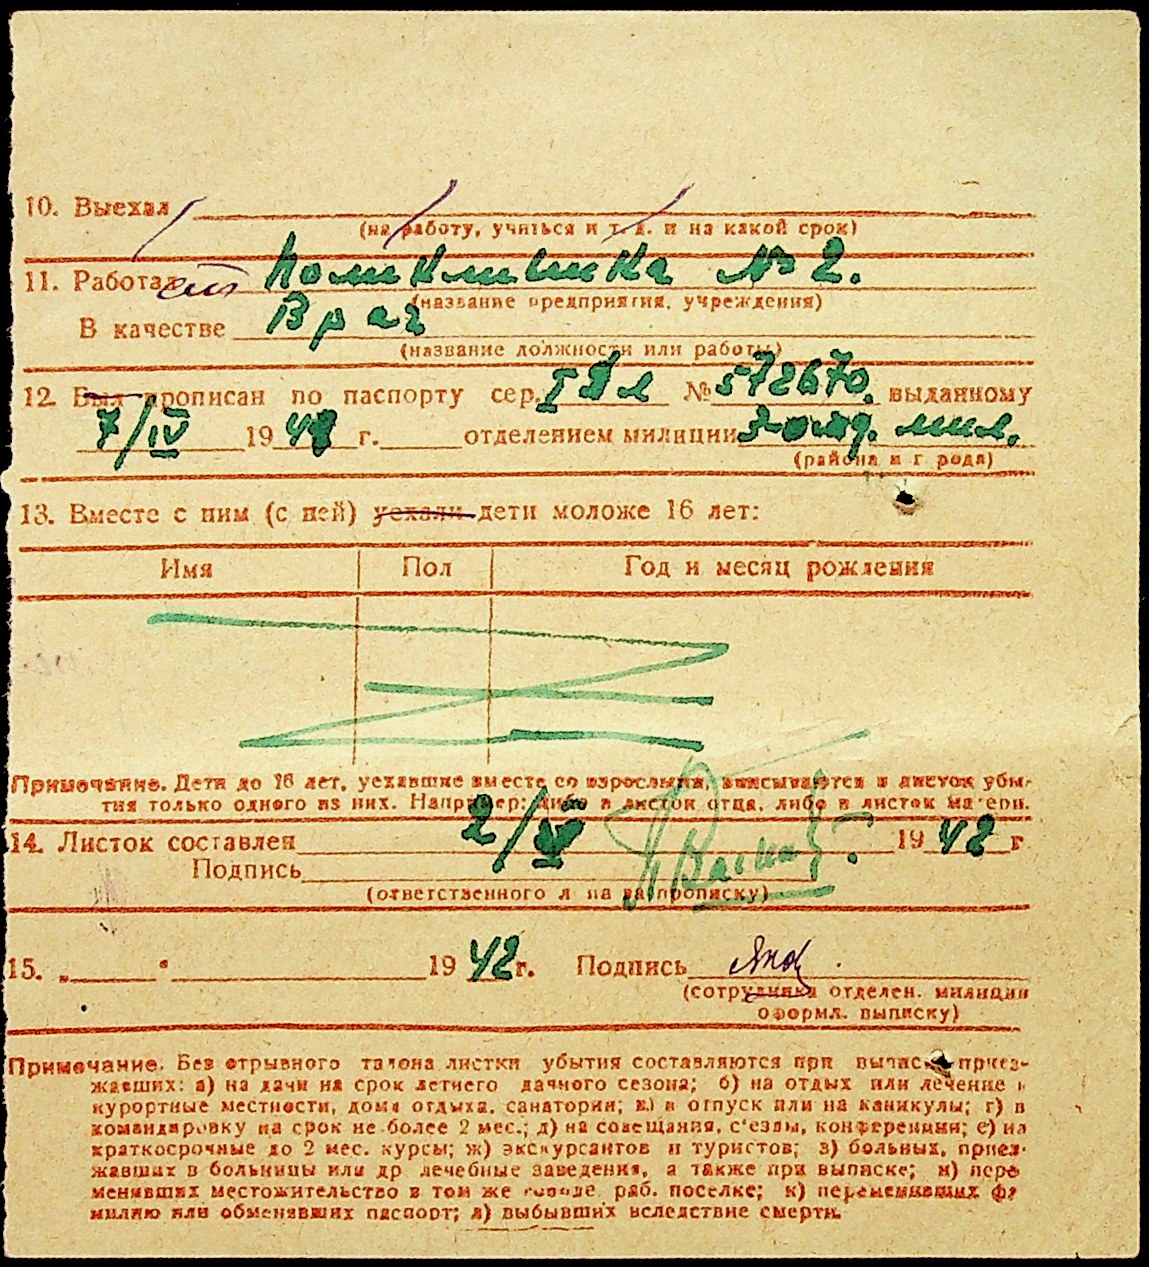 10. Выехал
(на работу, учиться и т. д. и на какой срок)
11. Работает Поликлиника № 2.
(название предприятия, учреждения)
В качестве Врач
(название должности или работы)
12. Был прописан по паспорту сер. I № 572670. выданному
7/IV 19 г. отделением милиции 3-отд. мил.
(района и города)
13. Вместе с ним (с ней) уехали дети моложе 16 лет:
Имя Пол Год и месяц рождения
Примечание. Дети до 16 лет, уехавшие вместе со взрослыми, вписываются в листок убы-
тия только одного из них. Например: либо в листок отца, либо в листок матери.
14. Листок составлен 2/ 1942 г
Подпись
(ответственного л на за прописку)
15. „ “ 1942 г. Подпись
(сотрудника отделен. милиции
оформл. выписку)
Примечание. Без отрывного талона листки убытия составляются при выписке приез-
жавших: а) на дачи на срок летнего дачного сезона; б) на отдых или лечение в
курортные местности, дома отдыха, санатории; в) в отпуск или на каникулы; г) в
командировку на срок не более 2 мес.; д) на совещания, с'езды, конференции; е) на
краткосрочные до 2 мес. курсы; ж) экскурсантов и туристов; з) больных, приез-
жавших в больницы или др лечебные заведения, а также при выписке; и) пере
менивших местожительство в том же городе, раб. поселке; к) переменивших фа
милию или обменявших паспорт; л) выбывших вследствие смерти.